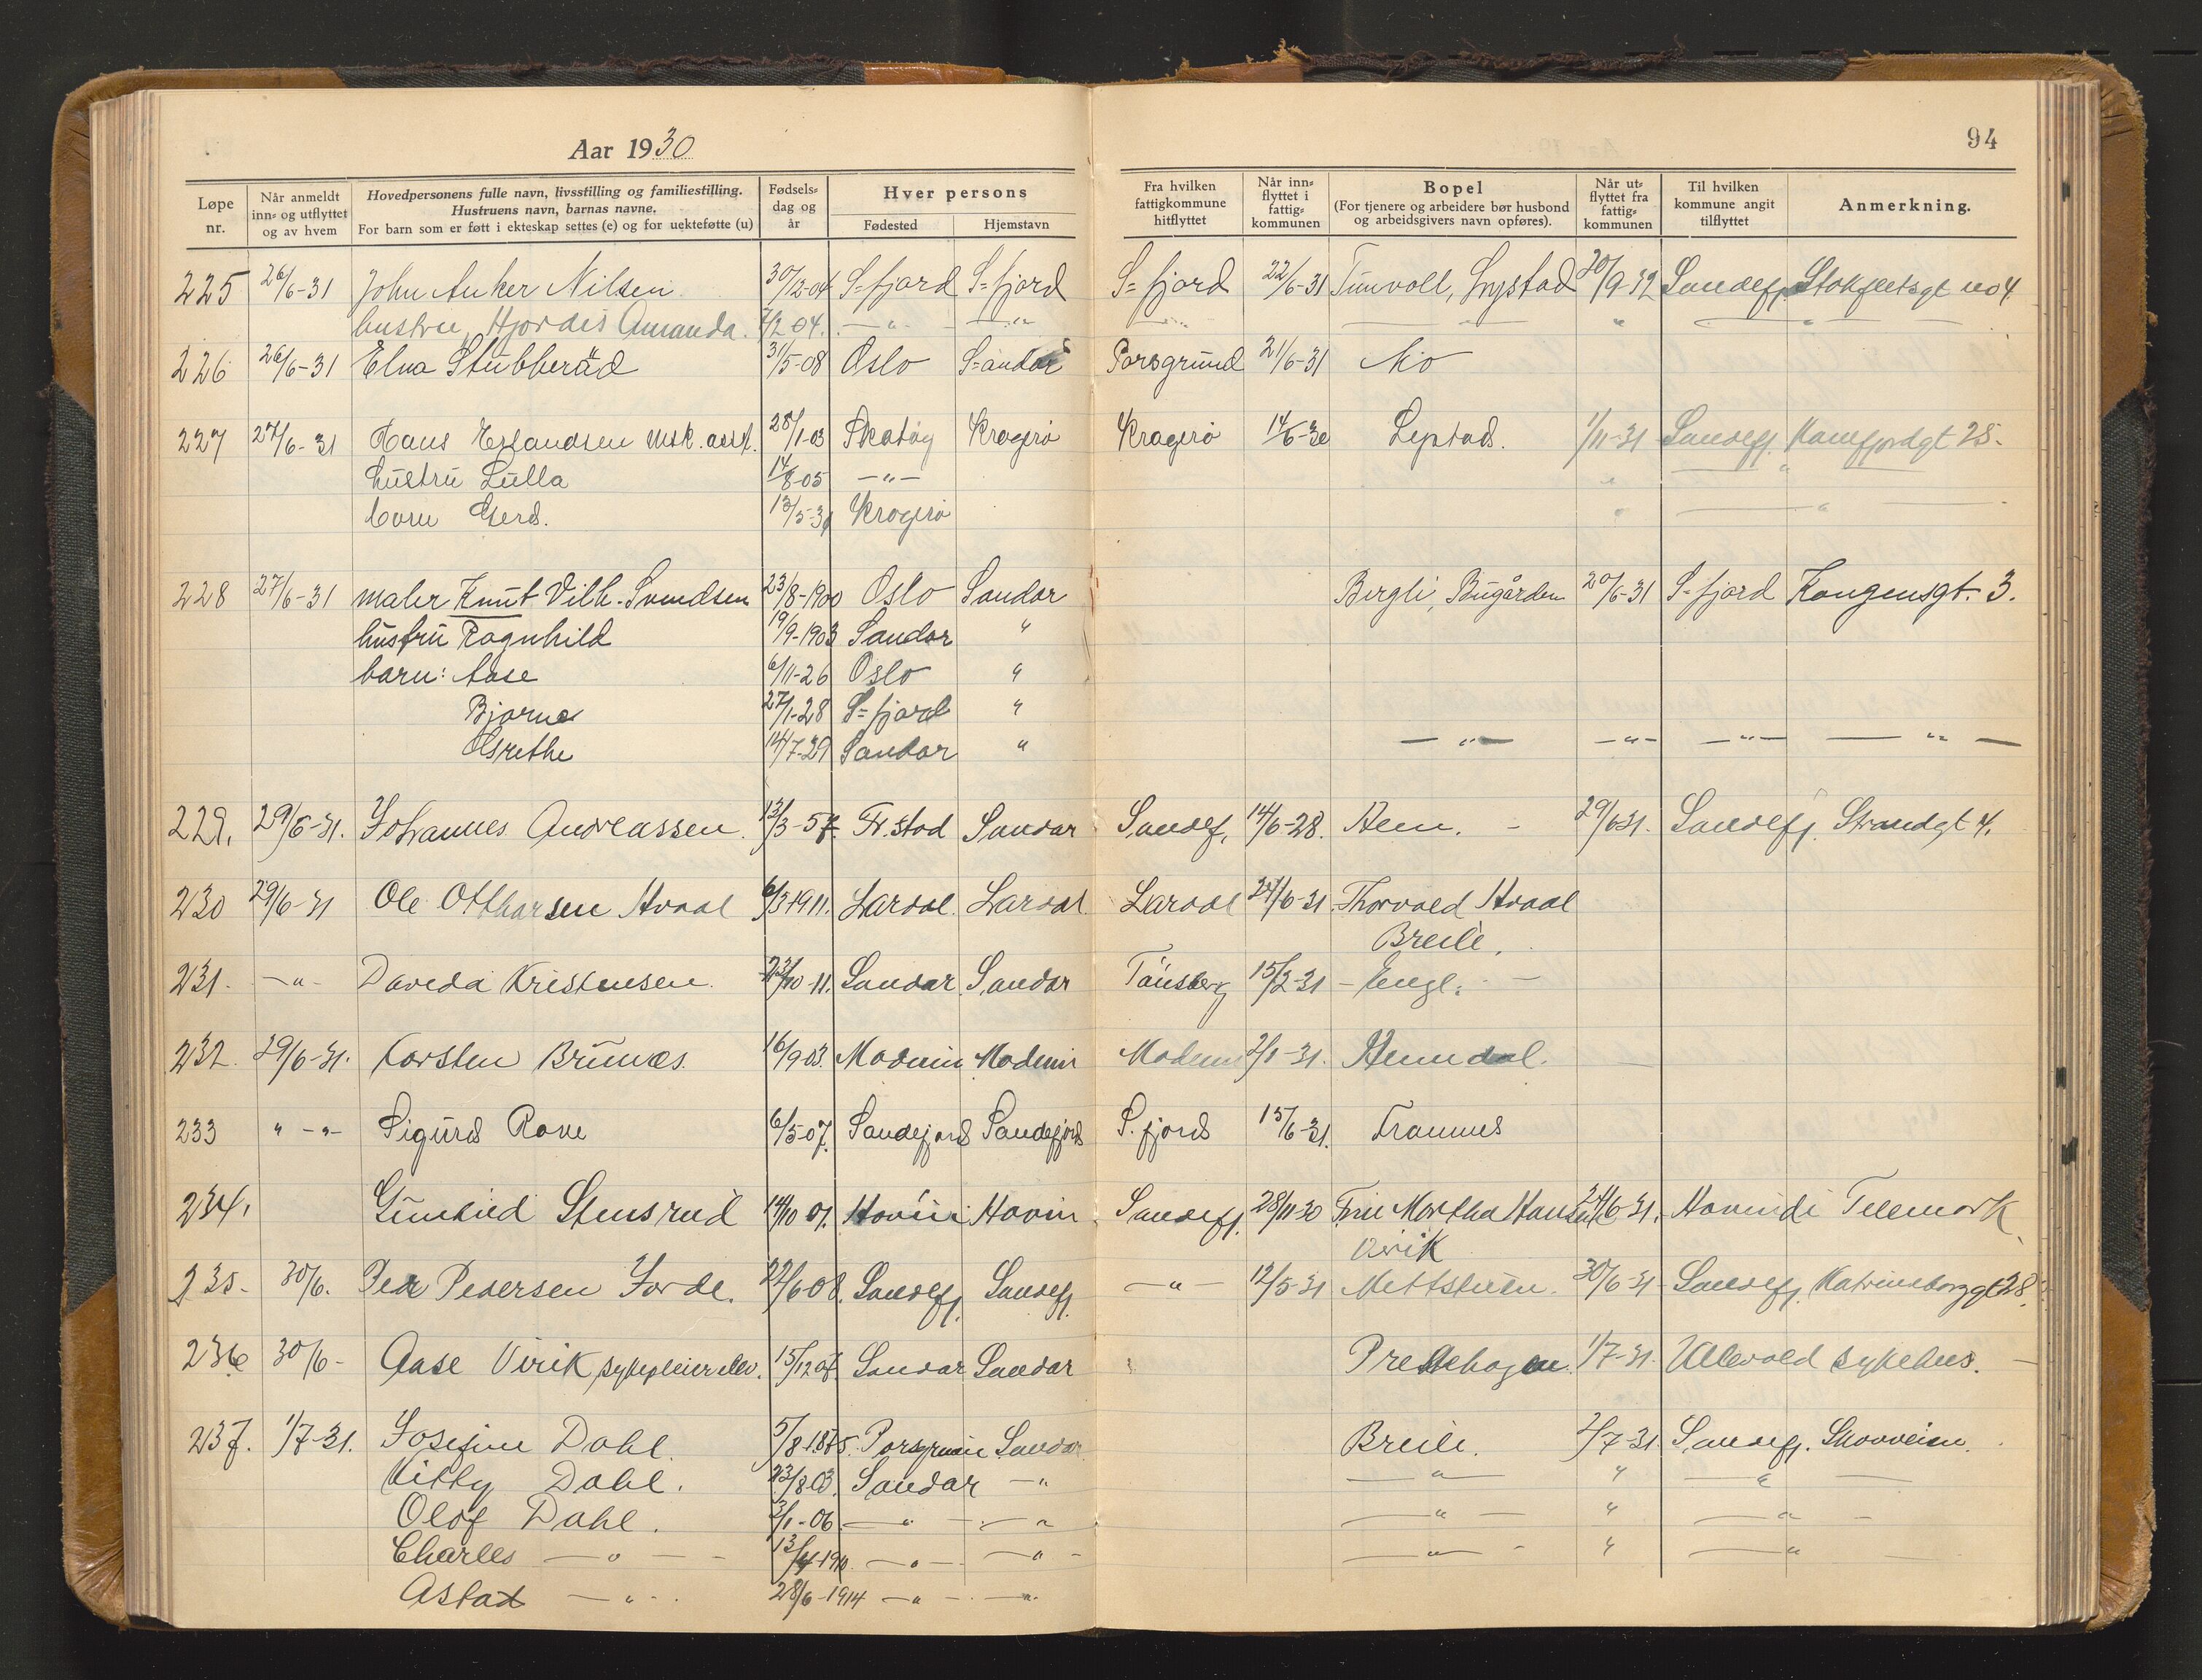 Aar 1930
94
Løpe nr. | Når anmeldt inn= og utflyttet og av hvem | Hovedpersonens fulle navn, livsstilling og familiestilling. Hustruens navn, barnas navne. For barn som er født i ekteskap settes (e) og for uekteføtte (u) | Fødsels= dag og år | Hver persons Fødested | Hjemstavn | Fra hvilken fattigkommune hitflyttet | Når inn= flyttet i fattig= kommunen | Bopel (For tjenere og arbeidere bør husbond og arbeidsgivers navn opføres). | Når ut= flyttet fra fattig= kommunen | Til hvilken kommune angit tilflyttet | Anmerkning.
225 26/6-31 John Anker Nilsen 30/12-04 S=fjord S=fjord S=fjord 22/6-31 Tunvoll, Lystad 20/9-32 Sandefj. Stokfletsgt no 4
hustru Hjordis Amanda. 7/2 04. —"— —"— —"— —"— " —"—
226 26/6-31 Elna Stubberud 31/5-08 Oslo S=andar Porsgrund 21/6-31 Mo
227 27/6-31 Hans Erlandsen msk. asst. 28/1-03 Skatøy Kragerø Kragerø 14/6-30 Lystad. 1/11-31 Sandefj. Kamfjordgt 25.
hustru Lulla 14/8-05 —"— " —"—
barn Gerd. 13/5-30 Kragerø " —"—
228 27/6-31 maler Knut Vilh. Svendsen 23/8-1900 Oslo Sandar Bergli, Bugården 20/6-31 S=fjord Kongensgt. 3.
hustru Ragnhild 19/9-1903 Sandar "
barn: Aase 6/11-26 Oslo "
Bjarne 27/1-28 S=fjord "
Grethe 14/7-29 Sandar " —"— —"— —"— —"—
229. 29/6-31. Johannes Andreassen. 13/3-57. Fr.stad Sandar Sandef, 14/6-28. Hem. - 29/6 31. Sandefj. Strandgt 4.
230 29/6-31 Ole Otharsen Hvaal 6/3 1911. Lardal. Lardal Lardal 24/6-31. Thorvald Hvaal
Breili.
231. —"— Daveda Kristensen. 23/10-11. Sandar Sandar Tønsberg 15/2-31 - Engl. -
232. 29/6-31. Karsten Brunæs. 16/9 03. Modum Modum Modum 2/1-31. Hemdal.
233 " —"— Sigurd Rove 6/5-07. Sandefjord Sandefjord S.fjord 15/6-31. Framnes
234. Gunhild Stensrud 14/10 07. Hovin Hovin Sandefj. 28/11-30 Fru Martha Hansen 24/6-31. Hovin i Telemark
Virik
235. 30/6. Per Pedersen Jorde. 22/6 08. Sandefj. Sandefj. —"— 12/5-31 Mettstuen. 30/6-31 Sandefj. Katrineborggt 28.
236 30/6- Aase Virik, sykepleierelev. 15/12 07 Sandar Sandar Prestehagen. 1/7-31. Ullevold sykehus.
237. 1/7-31. Josefine Dahl 5/8-1875. Porsgrunn Sandar Breili. 2/7-31 Sandefj. Skovveien.
Kitty Dahl. 23/8 03. Sandar —" —"— " —"—
Olof Dahl. 3/1-06 —"— —"— —"— " —"—
Charles —"— 13/4-1910 —"— —"— —"— " —"—
Astad —"— 28/6-1914 —"— —"—